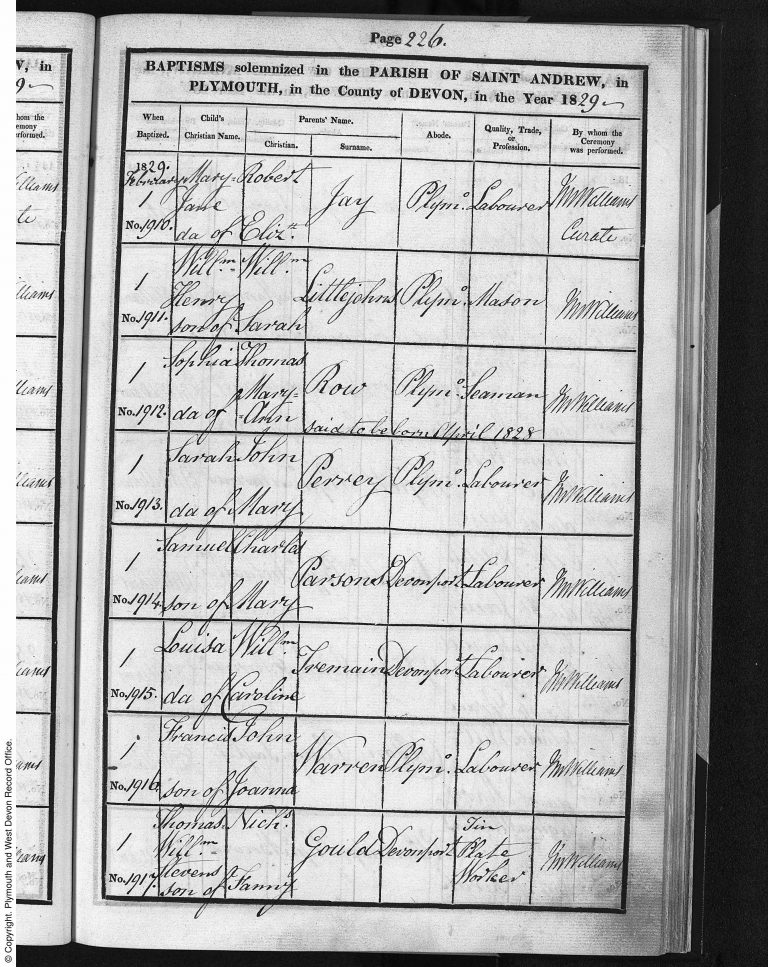 Page 226.
BAPTISMS solemnized in the PARISH OF SAINT ANDREW, in
PLYMOUTH, in the County of DEVON, in the Year 1829
When Baptized. Child's Christian Name. Parents' Name. Christian. Surname. Abode. Quality, Trade, or Profession. By whom the Ceremony was performed.
1829. February 1 No. 1910. Mary-Jane da of Robert Eliz.th Jay Plym.o Labourer Jn Williams Curate
1 No. 1911. Will.m Henry son of Will.m Sarah Littlejohns Plym.o Mason Jn Williams
1 No. 1912. Sophia da of Thomas Mary-Ann Row Plym.o Seaman Jn Williams
said to be born April 1828
1 No. 1913. Sarah da of John Mary Perrey Plym.o Labourer Jn Williams
1 No. 1914. Samuel son of Charles Mary Parsons Devonport Labourer Jn Williams
1 No. 1915. Louisa da of Will.m Caroline Tremain Devonport Labourer Jn Williams
1 No. 1916. Francis son of John Joanna Warren Plym.o Labourer Jn Williams
1 No. 1917. Thomas Will.m Stevens son of Nich.s Fanny Gould Devonport Tin Plate Worker Jn Williams
© Copyright. Plymouth and West Devon Record Office.